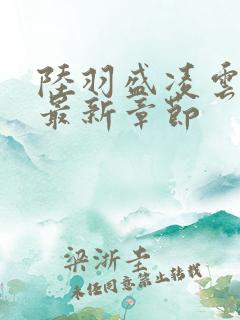 陸羽盛凌雲
最新章節
梁浙圭
未经同意禁止转载